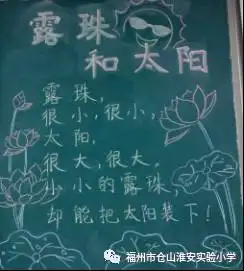 露珠
和太阳
露珠,
很小,很小,
太阳,
很大,很大。
小小的露珠,
却能把太阳装下!
福州市仓山淮安实验小学